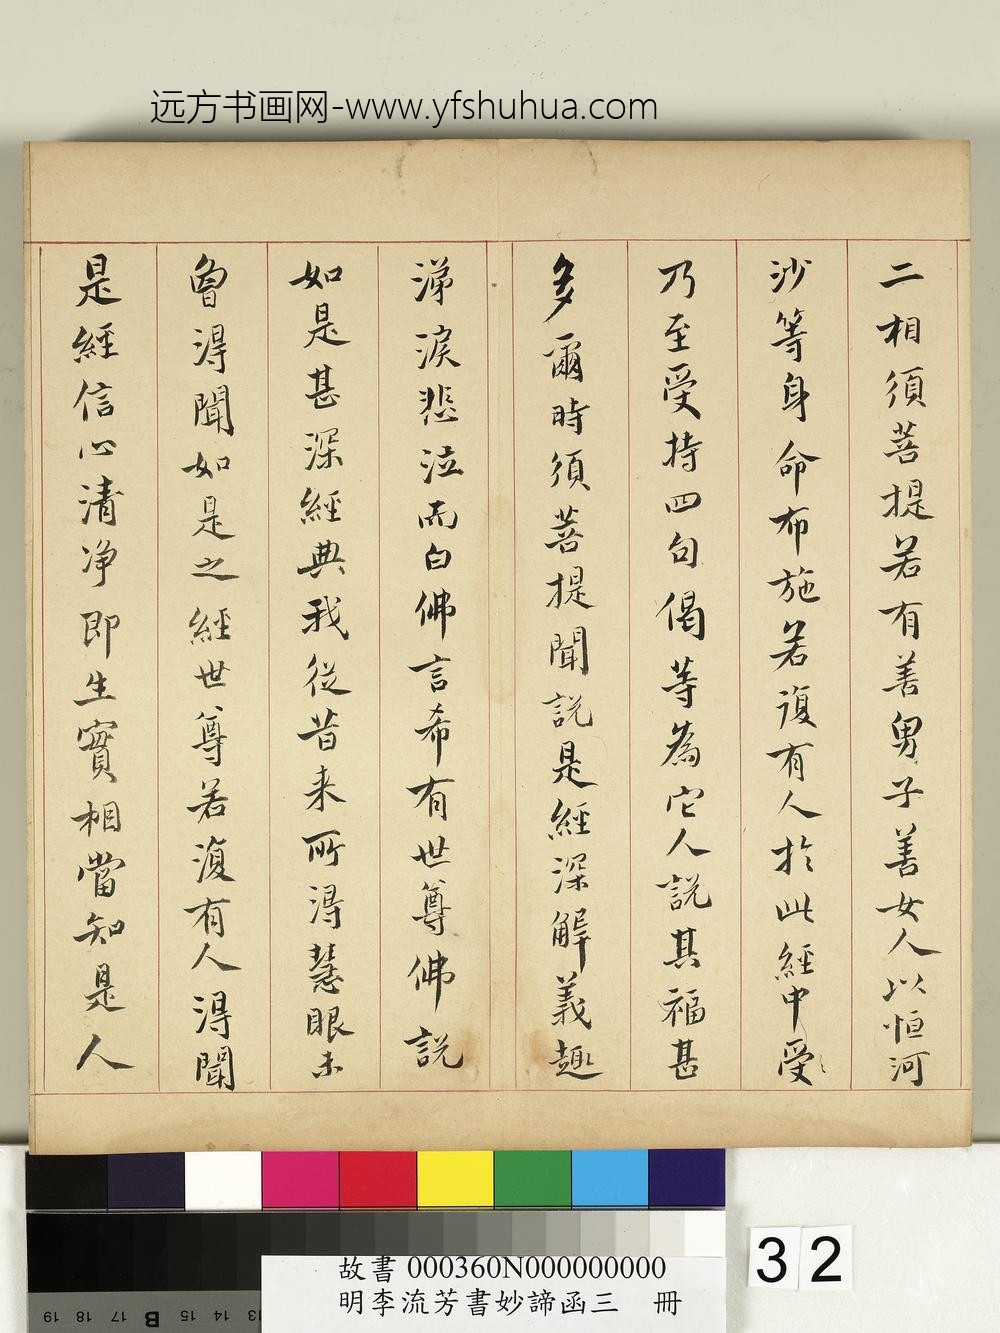 远方书画网-www.yfshuhua.com
二相須菩提若有善男子善女人以恒河
沙等身命布施若復有人於此經中受
乃至受持四句偈等為它人説其福甚
多爾時須菩提聞説是經深解義趣
涕淚悲泣而白佛言希有世尊佛説
如是甚深經典我從昔来所得慧眼未
曾得聞如是之經世尊若復有人得聞
是經信心清净即生實相當知是人
32
故書 000360N000000000
明李流芳書妙諦函三 冊
19 18 17 B 15 14 13